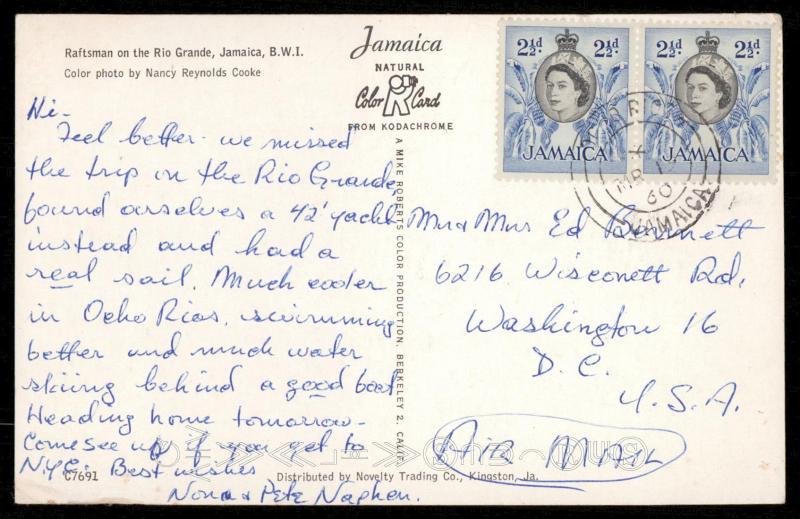 Raftsman on the Rio Grande, Jamaica, B.W.I.
Color photo by Nancy Reynolds Cooke
Jamaica
NATURAL
Color Card
FROM KODACHROME
2½d. 2½d.
JAMAICA
2½d. 2½d.
JAMAICA
MR
60
JAMAICA
Hi-
Feel better - we missed
the trip on the Rio Grande
found ourselves a 42' yacht
instead and had a
real sail. Much cooler
in Ocho Rios, swimming
better and much water
skiing behind a good boat
Heading home tomorrow-
Come see us if you get to
N.Y.C. Best wishes
Nona & Pete Naphen.
A MIKE ROBERTS COLOR PRODUCTION, BERKELEY 2, CALIF.
Mr & Mrs Ed Bennett
6216 Wisconett Rd,
Washington 16
D.C.
U.S.A.
AIR MAIL
C7691
Distributed by Novelty Trading Co., Kingston, Ja.